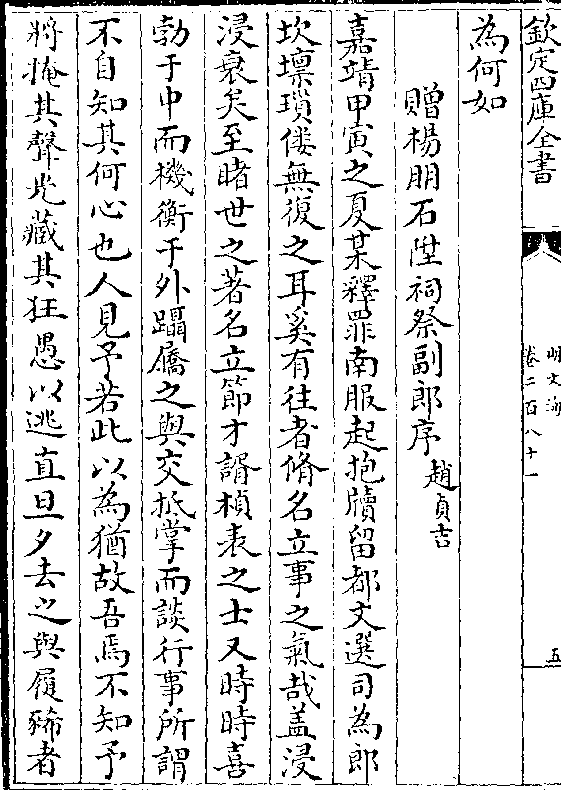 欽定四庫全書
明文海
卷二百八十一
五
為何如
贈楊朋石陞祠祭副郎序 趙貞吉
嘉靖甲寅之夏某釋罪南服起抱牘留都文選司為郎
坎壈瑣僂無復之耳奚有往者脩名立事之氣哉蓋浸
浸衰矣至睹世之著名立節才諝楨表之士又時時喜
勃于中而機衡于外躡屩之與交抵掌而談行事所謂
不自知其何心也人見予若此以為猶故吾焉不知予
將掩其聲光藏其狂愚以逃直旦夕去之與屐豨者